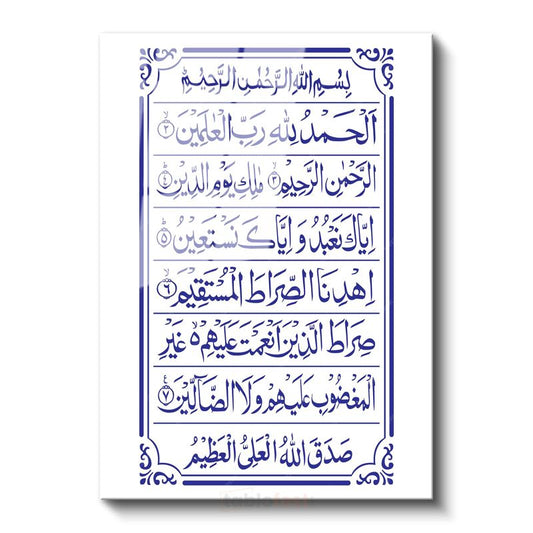 بِسْمِ اللهِ الرَّحْمٰنِ الرَّحِيْمِ
اَلْحَمْدُ لِلّٰهِ رَبِّ الْعٰلَمِيْنَ ٢
الرَّحْمٰنِ الرَّحِيْمِ ٣ مٰلِكِ يَوْمِ الدِّيْنِ ٤
اِيَّاكَ نَعْبُدُ وَ اِيَّاكَ نَسْتَعِيْنُ ٥
اِهْدِنَا الصِّرَاطَ الْمُسْتَقِيْمَ ٦
صِرَاطَ الَّذِيْنَ اَنْعَمْتَ عَلَيْهِمْ ە غَيْرِ
الْمَغْضُوْبِ عَلَيْهِمْ وَلَا الضَّآلِّيْنَ ٧
صَدَقَ اللهُ الْعَلِىُّ الْعَظِيْمُ